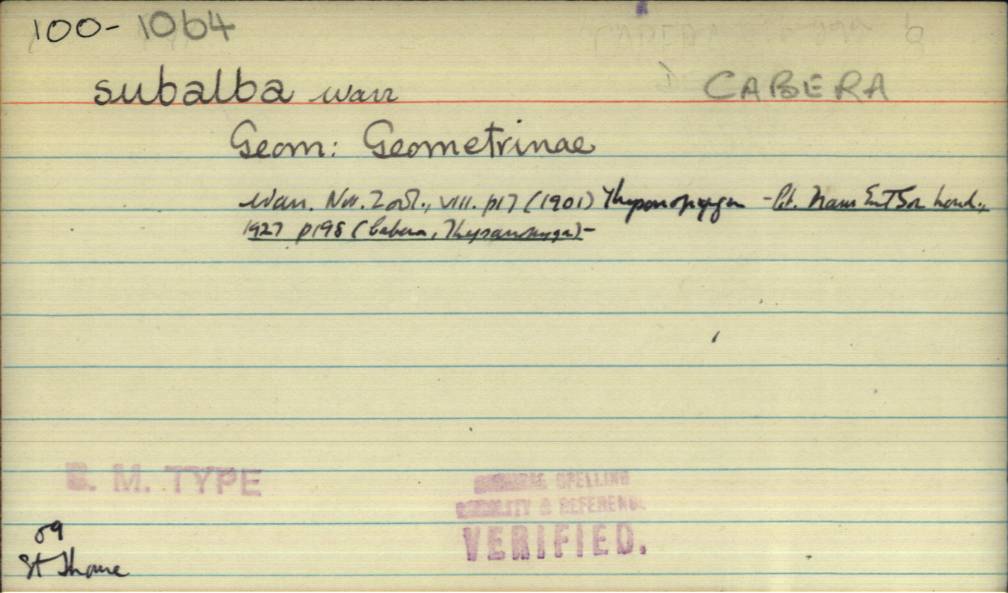 100-1064
subalba Warr CABERA
Geom: Geometrinae
Warr. Nov. Zool., VIII. p17 (1901) Thysanopyga - Prt. Trans Ent Soc Lond.,
1927 p198 (Cabera, Thysanopyga)-
B. M. TYPE
SPELLING
LOCALITY & REFERENCE
VERIFIED.
St Thome